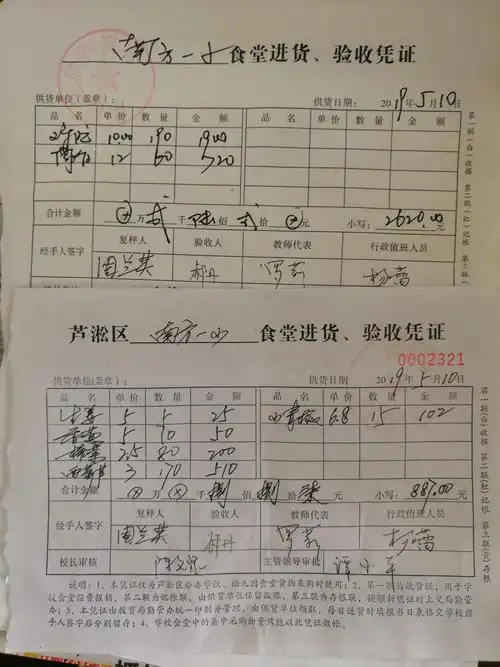 南方一小食堂进货、验收凭证
供货单位(盖章): 供货日期: 2019年5月10日
品名 单价 数量 金额 品名 单价 数量 金额
10.00 190 1900
12 60 720
合计金额 ⊗万 贰千 陆佰 贰拾 ⊗元 小写: 2620.00
经手人签字 复秤人 验收人 教师代表 行政值班人员
周兰英 郝丹 罗莉 杨蕾
第一联(白)收据 第二联(红)记帐 第三联(
芦淞区 南方一小 食堂进货、验收凭证
0002321
供货单位(盖章): 供货日期 2019年5月10日
品名 单价 数量 金额 品名 单价 数量 金额
生姜 5 5 25 小青椒 6.8 15 102
5 10 50
2.5 80 200
西葫芦 3 170 510
合计金额 ⊗万 ⊗千 捌佰 捌拾 柒元 小写: 887.00元
经手人签字 复秤人 验收人 教师代表 行政值班人员
周兰英 郝丹 罗莉 杨蕾
校长审核 主管领导审批
第一联(白)收据 第二联(红)记帐 第三联(灰)存根
说明:1、本凭证仅为芦淞区公办学校、幼儿园食堂货物采购时使用;2、第一联为收货联,用于学
校食堂经费报销,第二联为记帐联,由供货单位保留做账,第三联为存根联,换领新凭证时上交局勤管
办;3、本凭证由教育局勤管办统一印制并管理,由供货单位领取,每日送货时填报当日表格交学校经
手人签字后分别留存;4、学校食堂中的集中采购物资只能以此凭证做帐。